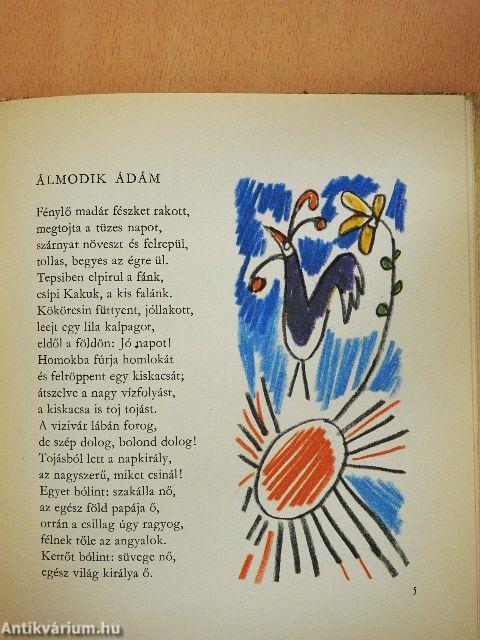 ÁLMODIK ÁDÁM
Fénylő madár fészket rakott,
megtojta a tüzes napot,
szárnyat növeszt és felrepül,
tollas, begyes az égre ül.
Tepsiben elpirul a fánk,
csípi Kakuk, a kis falánk.
Kökörcsin füttyent, jóllakott,
leejt egy lila kalpagot,
eldől a földön: Jó napot!
Homokba fúrja homlokát
és felröppent egy kiskacsát;
átszelve a nagy vízfolyást,
a kiskacsa is toj tojást.
A vizivár lábán forog,
de szép dolog, bolond dolog!
Tojásból lett a napkirály,
az nagyszerű, miket csinál!
Egyet bólint: szakálla nő,
az egész föld papája ő,
orrán a csillag úgy ragyog,
félnek tőle az angyalok.
Kettőt bólint: süvege nő,
egész világ királya ő.
5
Antikvárium.hu